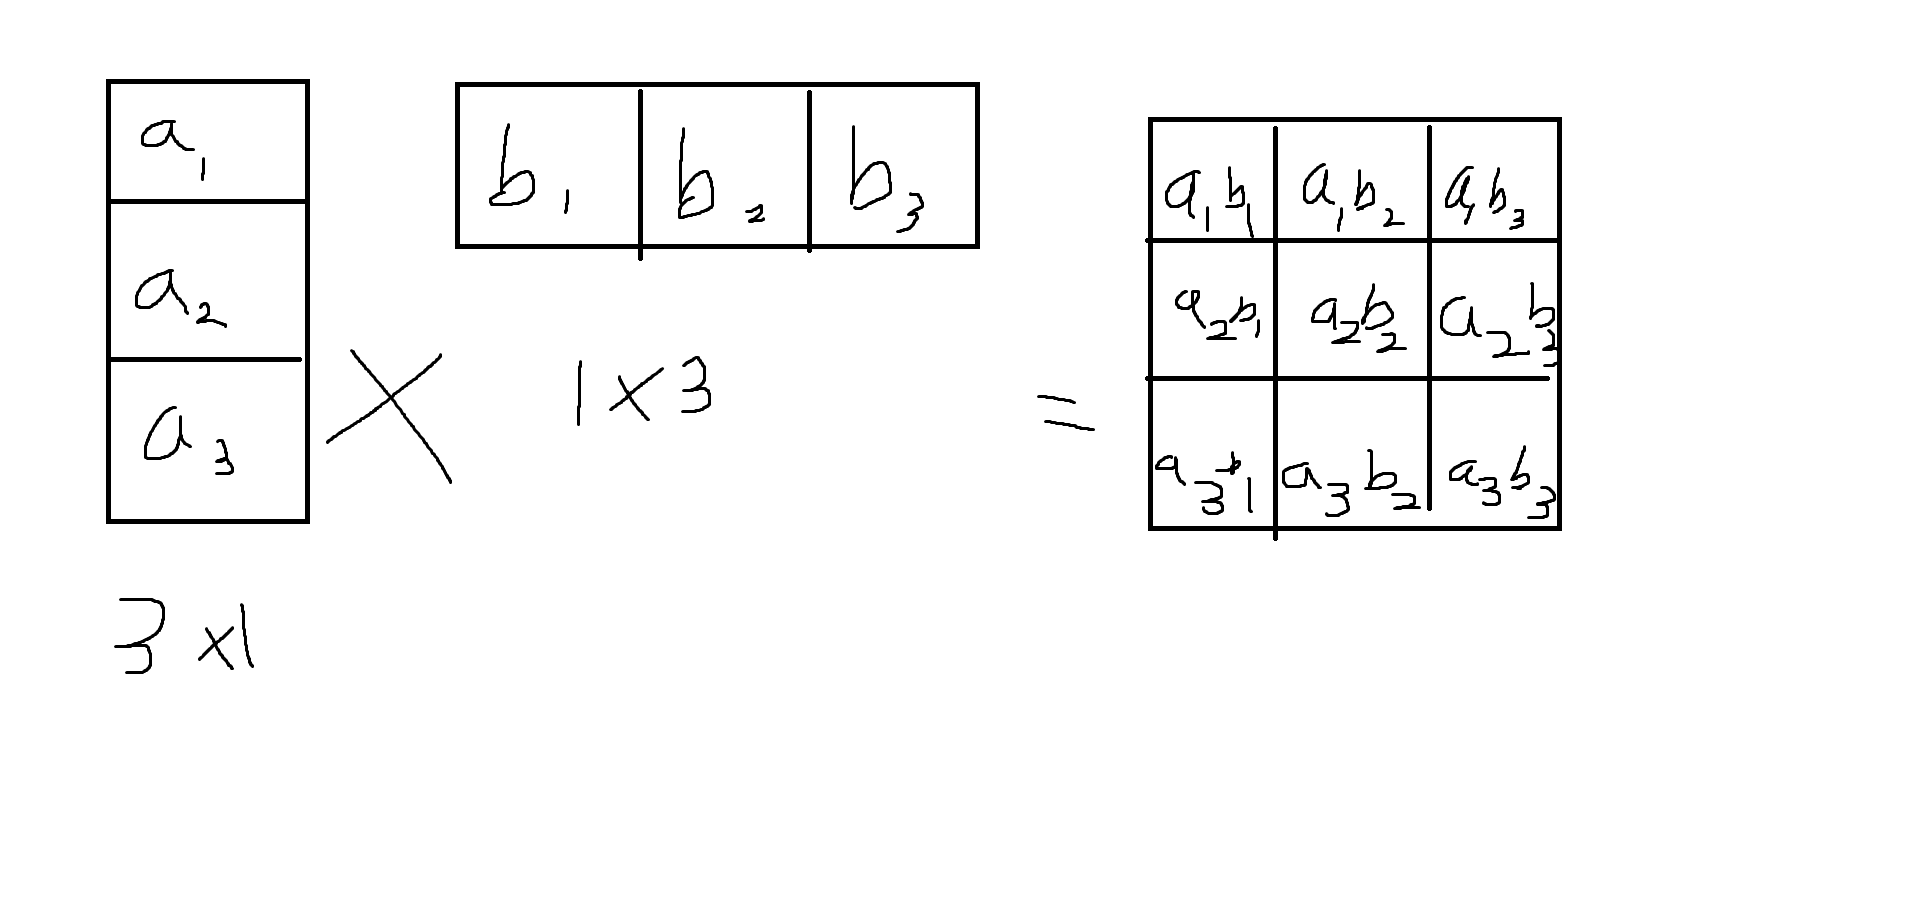 a₁
a₂
a₃
3 x 1
X
b₁ b₂ b₃
1 x 3
=
a₁b₁ a₁b₂ a₁b₃
a₂b₁ a₂b₂ a₂b₃
a₃b₁ a₃b₂ a₃b₃